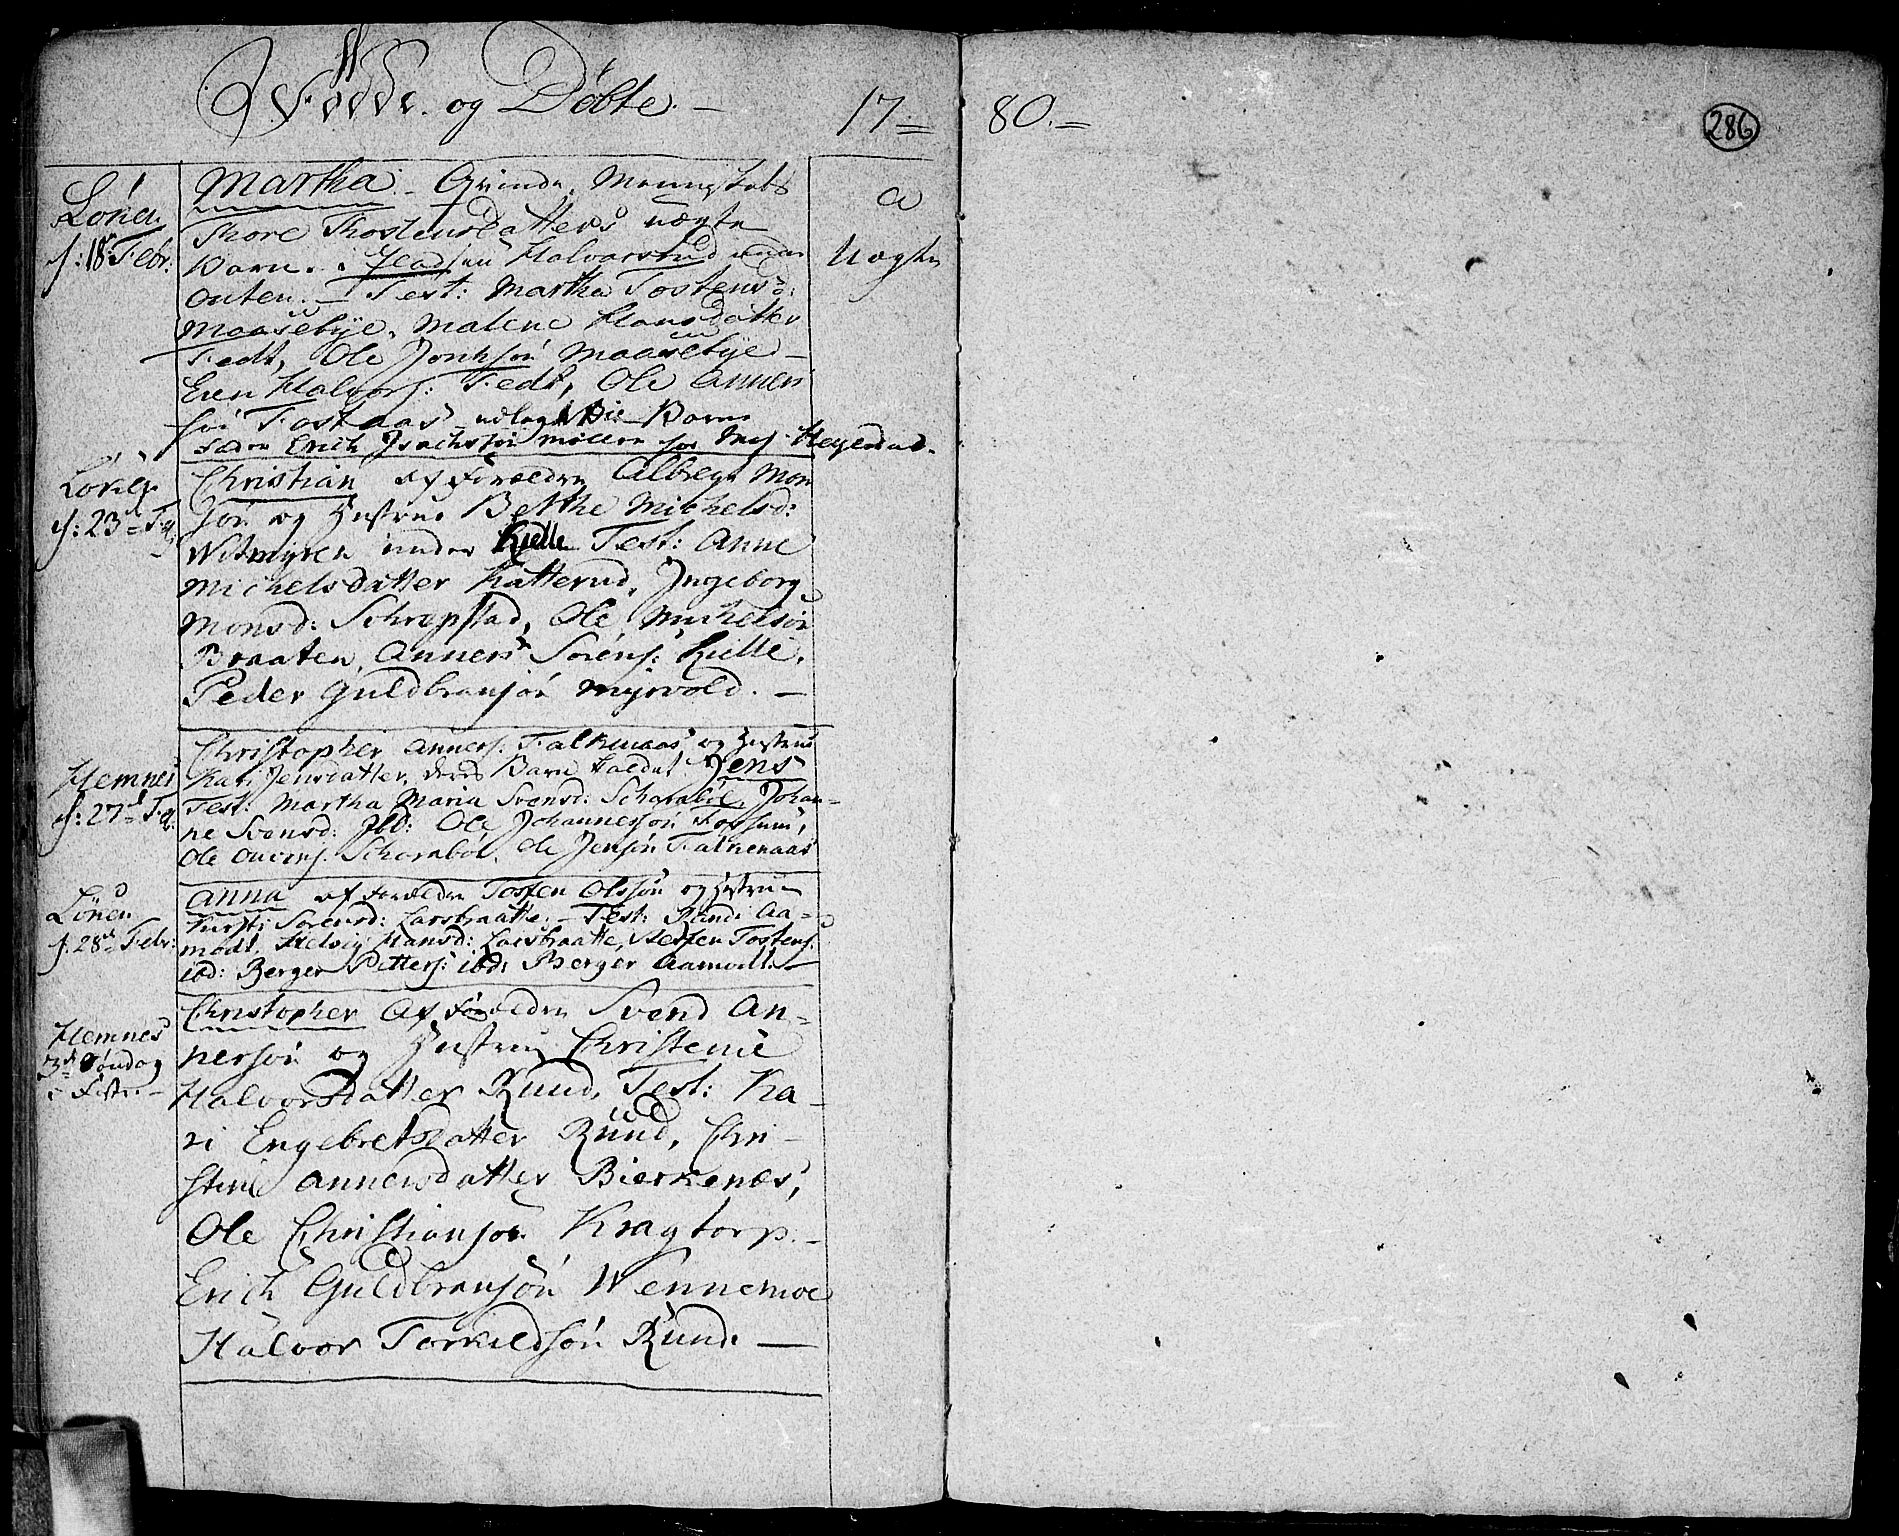 Fødde og Døbte. —
17=
80.=
286
Lönen
d: 18: Febr:
Martha. - Qvinde Mennskets
Thore Thostensdatters uægte
Barn.
Halvorsrud
Outen. — Test: Martha Tostensd:
Maasebye, Malene Hansdatter
Fedt, Ole Maasebye —
Even Halvors: Fedt, Ole Anners
søn Fostaas udlagd Barne
Erich Isachssøn
a
Uægte
d: 23d
Christian af Forældre Mon
søn og Hustrue Bethe Michelsd:
Witmyren under Kielle Test: Anne
Michelsdatter Katterud, Ingeborg
Monsd: Schrepstad, Ole Michelsøn
Braaten, Anners Sörens: Kielle,
Peder Guldbransøn Myrvold. —
Hemnes
d: 27d
Christopher Anners: Falkenaas og Hustrue
Kari Jensdatter, deres Barn kaldet Jens
Test: Martha Maria Svensd: Schorabøl, Johan-
ne Svensd: Ibd: Ole Johannessøn Fossum,
Ole Schorabøl, Ole Jensøn Falkenaas
Lönen
d: 28d Febr:
Anna af Forældre Tosten Olssøn og Hustrue
Kirsti Sorensd: Larsbraatte. — Test: Aa-
modt, Helvig Hansd: Larsbraatte, Tostens:
ibd: Berger Petters: ibd: Berger Aamodt —
Hemnes
3d Søndag
i Faste —
Christopher Af Forældre Svend An-
nersøn og Hustrue Christenie
Halvorsdatter Ruud, Test: Ka-
ri Engebretsdatter Ruud, Chri-
stine Annersdatter Bierkenæs,
Ole Christiansøn Kragtorp. —
Erich Guldbransøn Wennemoe
Halvor Torkildsøn Ruud. —